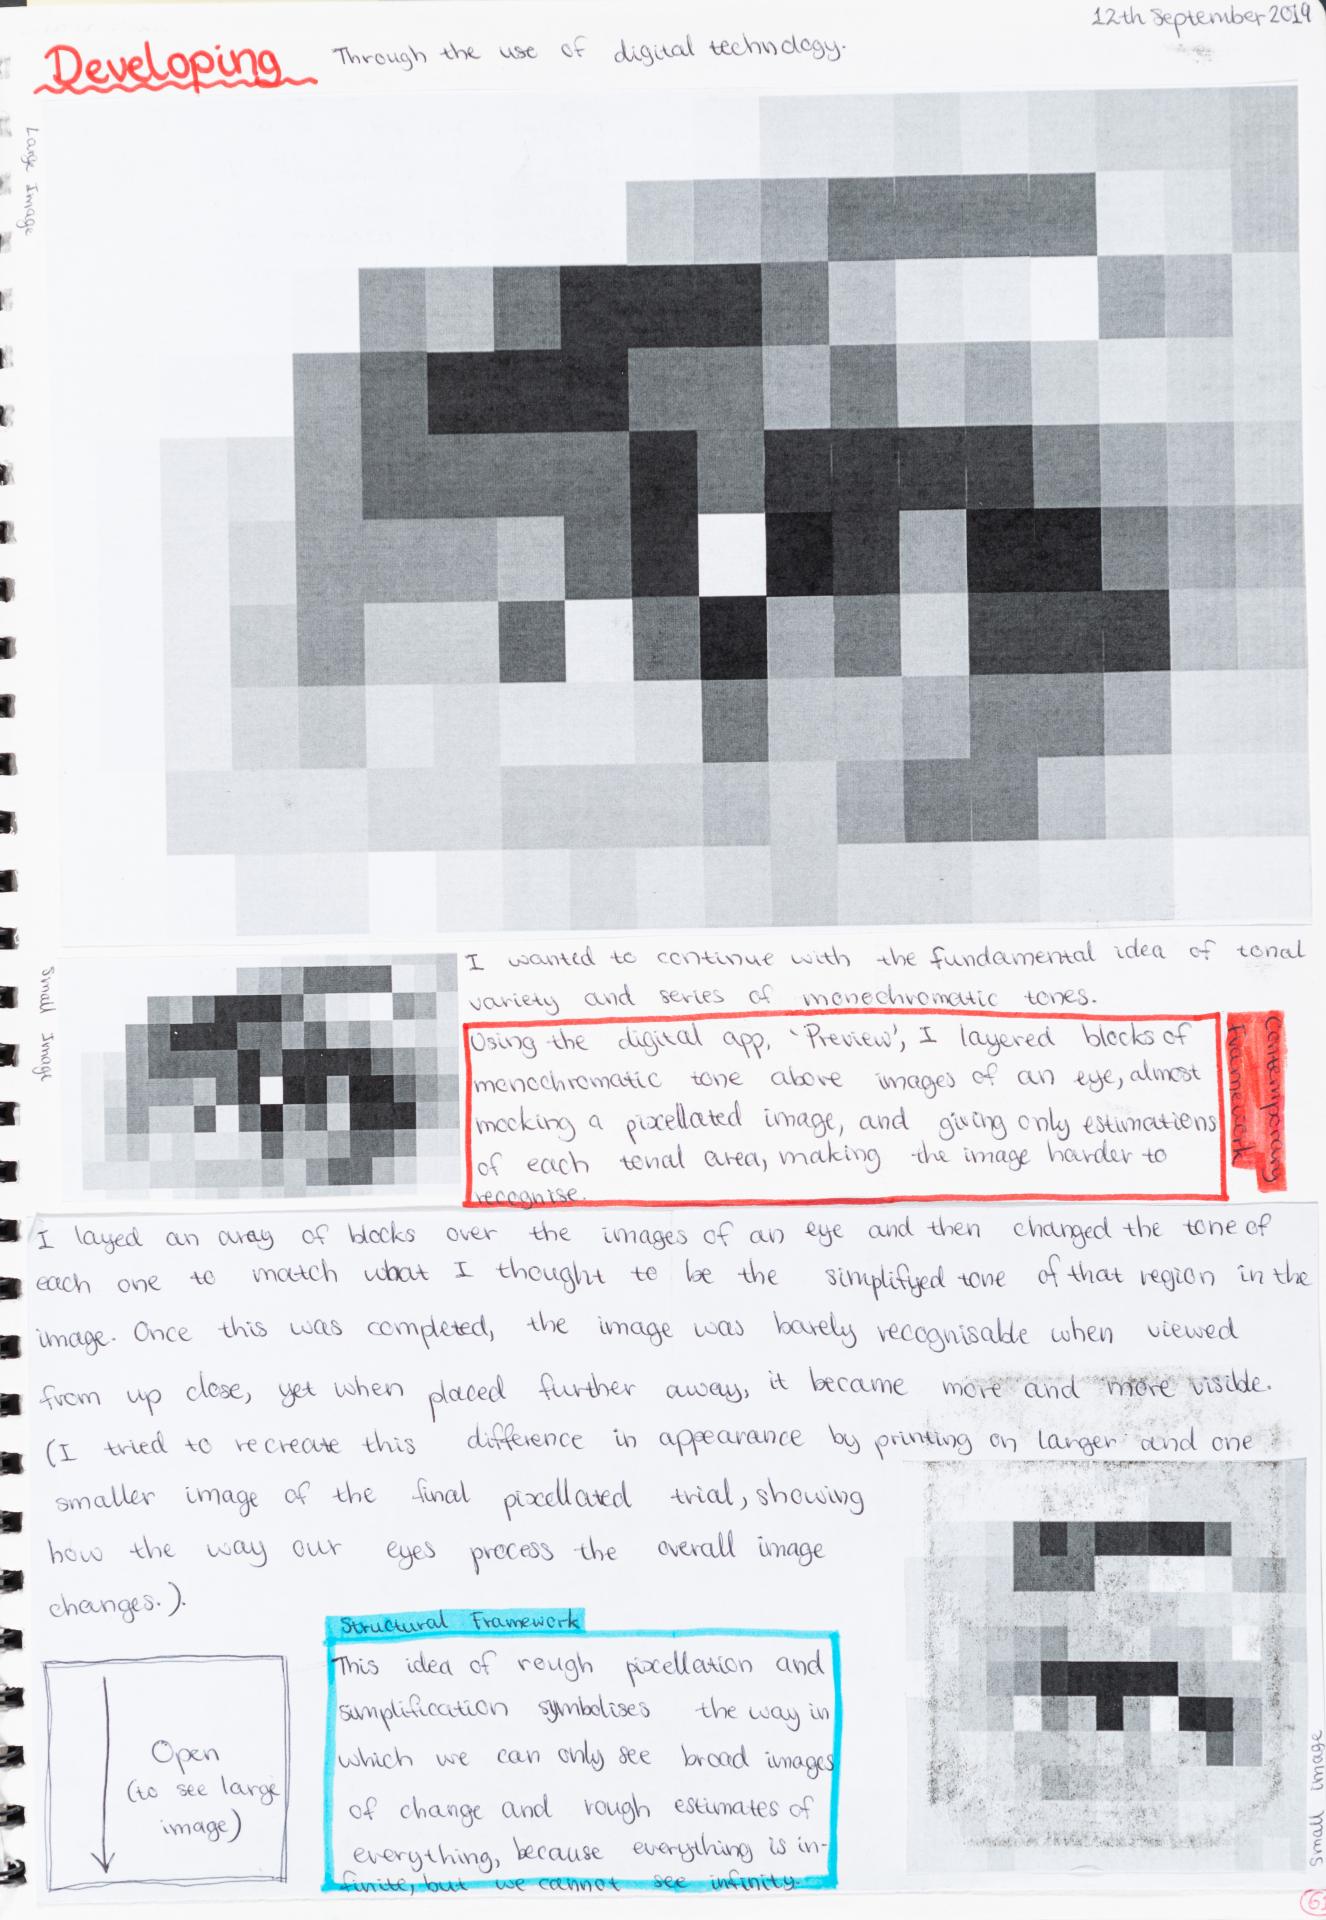 12th September 2019
Developing Through the use of digital technology.
Large Image
Small Image
I wanted to continue with the fundamental idea of tonal
variety and series of monochromatic tones.
Using the digital app, 'Preview', I layered blocks of
monochromatic tone above images of an eye, almost
mocking a pixellated image, and giving only estimations
of each tonal area, making the image harder to
recognise.
Contemporary
Framework
I layed an array of blocks over the images of an eye and then changed the tone of
each one to match what I thought to be the simplifyed tone of that region in the
image. Once this was completed, the image was barely recognisable when viewed
from up close, yet when placed further away, it became more and more visible.
(I tried to recreate this difference in appearance by printing on larger and one
smaller image of the final pixellated trial, showing
how the way our eyes process the overall image
changes.).
Structural Framework
This idea of rough pixellation and
simplification symbolises the way in
which we can only see broad images
of change and rough estimates of
everything, because everything is in-
finite, but we cannot see infinity.
Open
(to see large
image)
small image
61